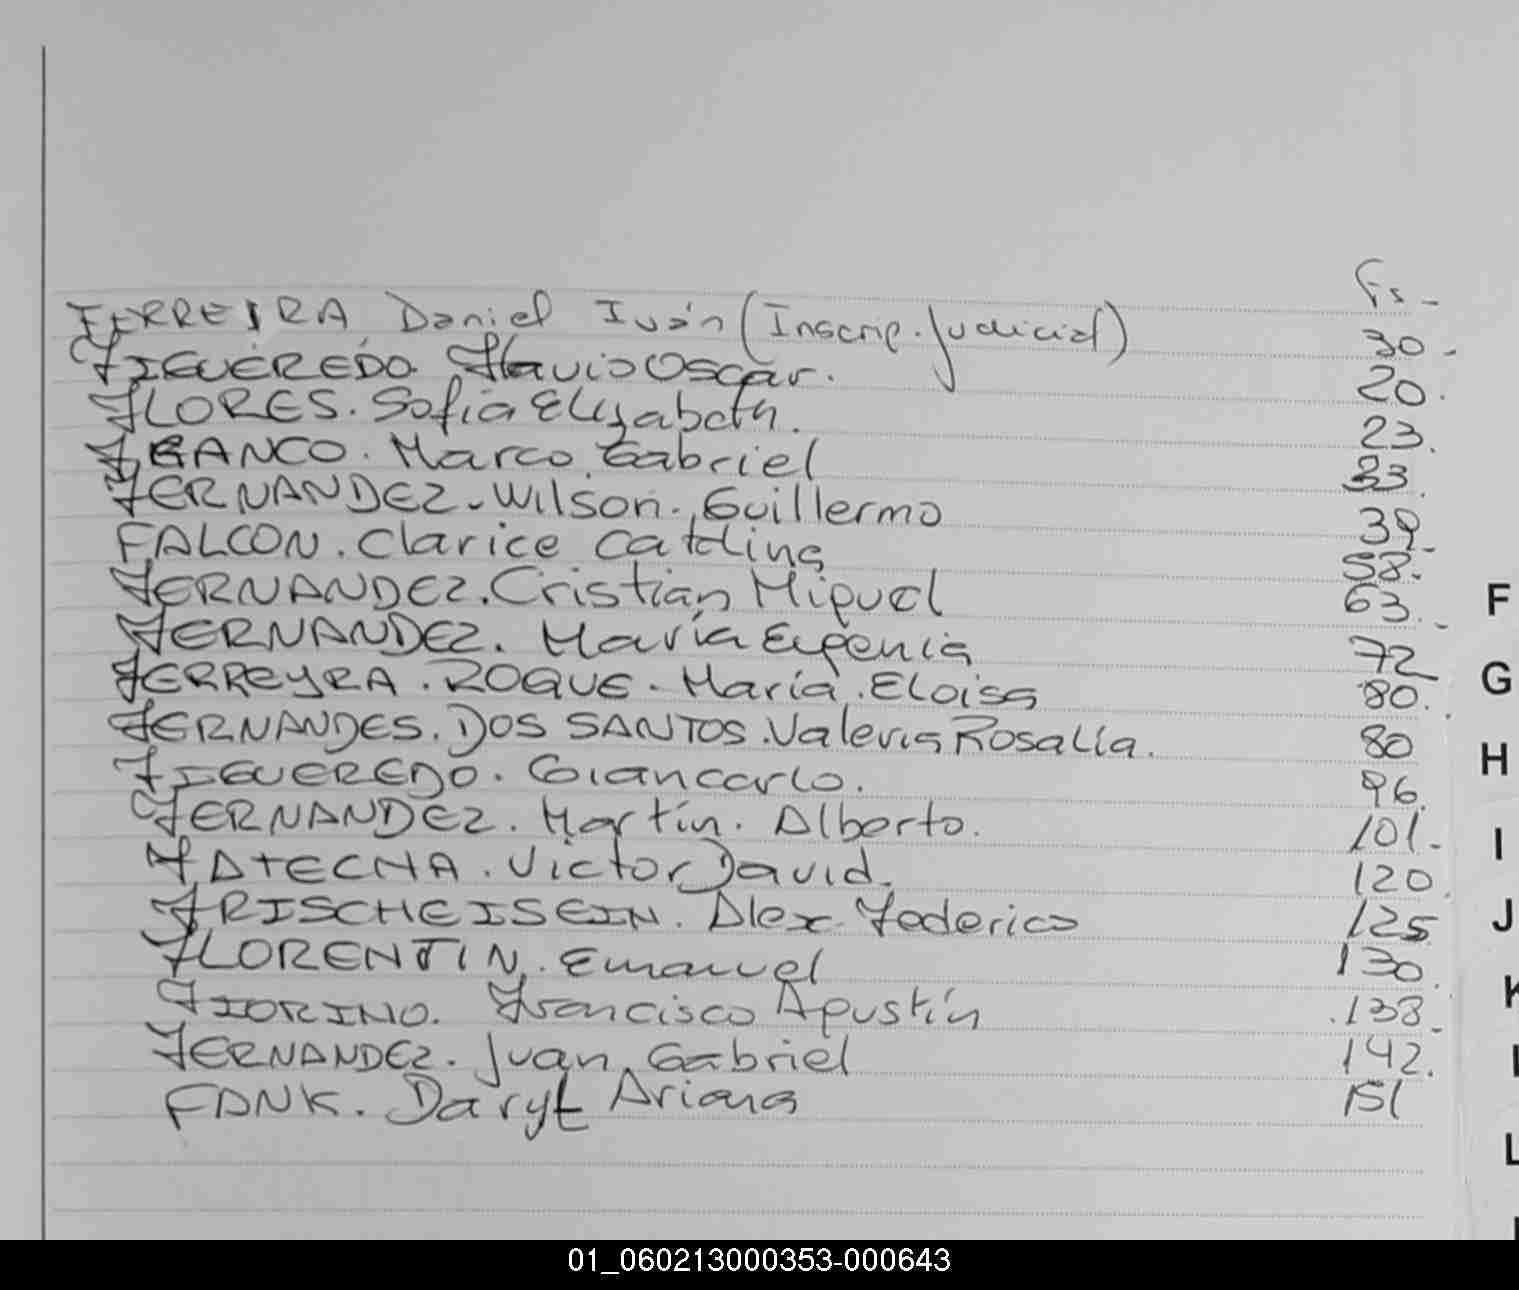 Fs-
FERREIRA Daniel Iván (Inscrip. Judicial) 30-
FIGUEREDO. Flavio Oscar. 20.
FLORES. Sofia Elizabeth. 23.
FRANCO. Marco Gabriel 33.
FERNANDEZ-Wilson. Guillermo 39-
FALCON. Clarice Catalina 58.
FERNANDEZ. Cristian Miguel 63.-
FERNANDEZ. María Eugenia 72
FERREYRA. ROQUE. María. Eloisa 80.
FERNANDES. DOS SANTOS. Valeria Rosalía. 80
FIGUEREDO. Giancarlo. 96.
FERNANDEZ. Martín. Alberto. 101.-
FATECHA. Victor David. 120.
FRISCHEISEIN. Alex Federico 125
FLORENTIN. Emanuel 130.
FIORINO. Francisco Agustín 138.-
FERNANDEZ. Juan Gabriel 142.
FANK. Daryt Ariana 151
F
G
H
I
J
K
L
01_060213000353-000643